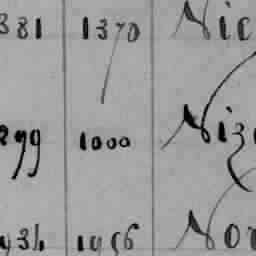 381 1370 Nic
299 1000 Niz
434 1956 Nor